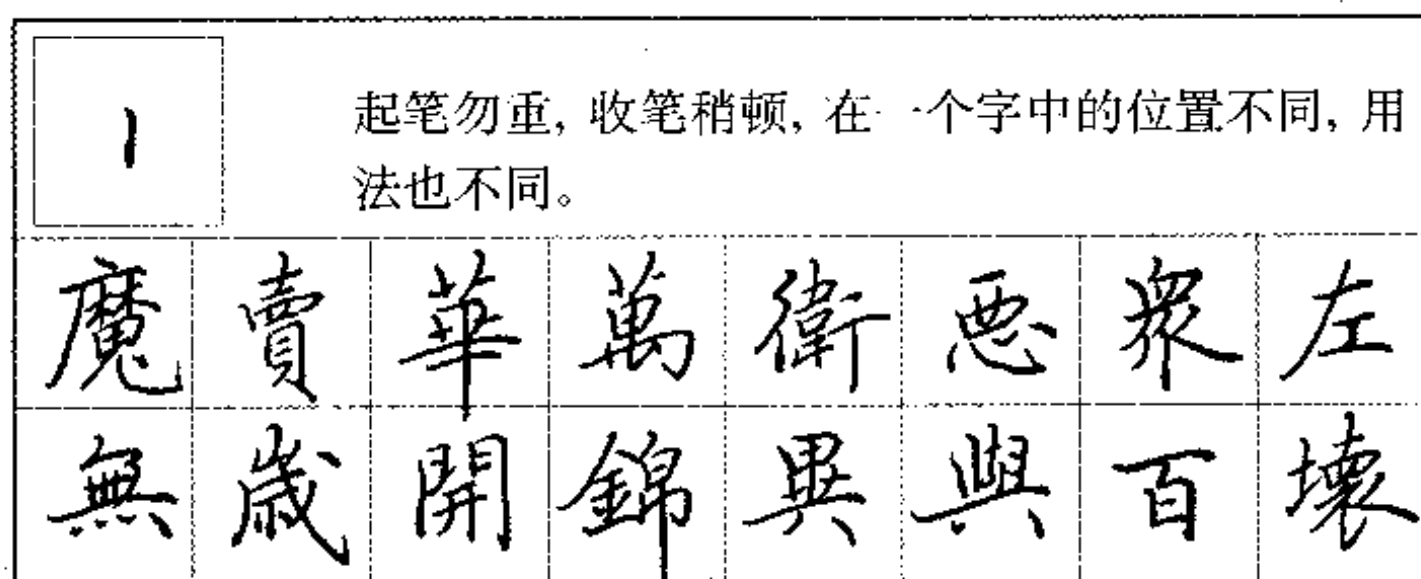 起笔勿重,收笔稍顿,在一个字中的位置不同,用
法也不同。
魔 賣 華 萬 衛 悪 衆 左
無 歲 開 錦 異 與 百 壞